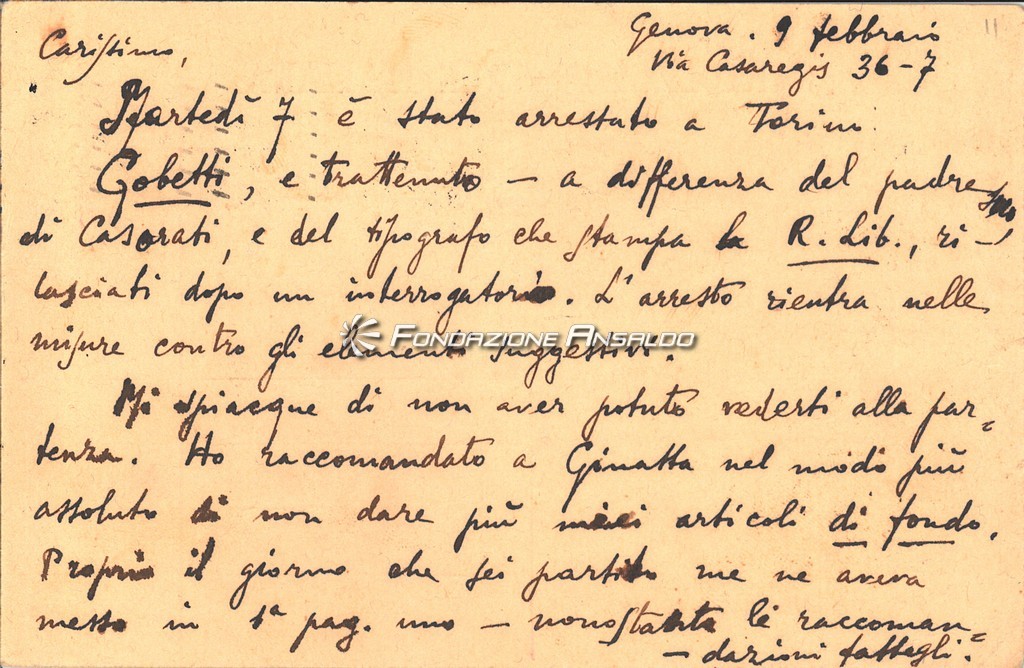 11
Genova. 9 febbraio
Via Casaregis 36-7
Carissimo,
Martedì 7 è stato arrestato a Torino
Gobetti, e trattenuto — a differenza del padre suo
di Casorati, e del tipografo che stampa la R. Lib., ri-
lasciati dopo un interrogatorio. L'arresto rientra nelle
misure contro gli elementi suggestivi.
FONDAZIONE ANSALDO
Mi spiacque di non aver potuto vederti alla par=
tenza. Ho raccomandato a Ginatta nel modo più
assoluto di non dare più miei articoli di fondo.
Proprio il giorno che sei partito me ne aveva
messo in 1ª pag. uno — nonostante le raccoman=
-dazioni fattegli.